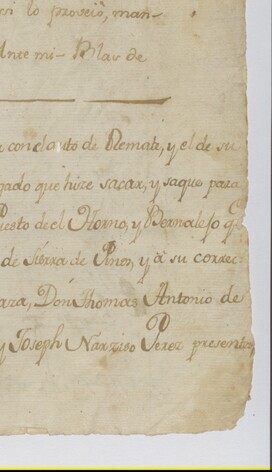 lo proveiò, man-
Ante mi- Blas de
con el auto de Remate, y el de su
gado que hize sacar, y saque para
uesto de el Horno, y Bernalejo q
de Sierra de Pinos, y à su corre:
aza, Don Thomas Antonio de
y Joseph Narziso Perez presente